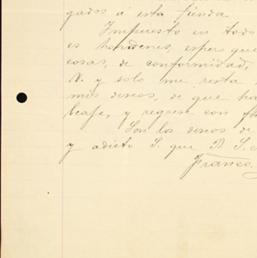 gados á esta tienda.
Impuesto en todo
es hordenes, espero que
cosas, de conformidad,
N. y solo me resta
mis deseos, de que ha
y regrese con
Son los deseos de
y adicto S. que B. S.
Franco.